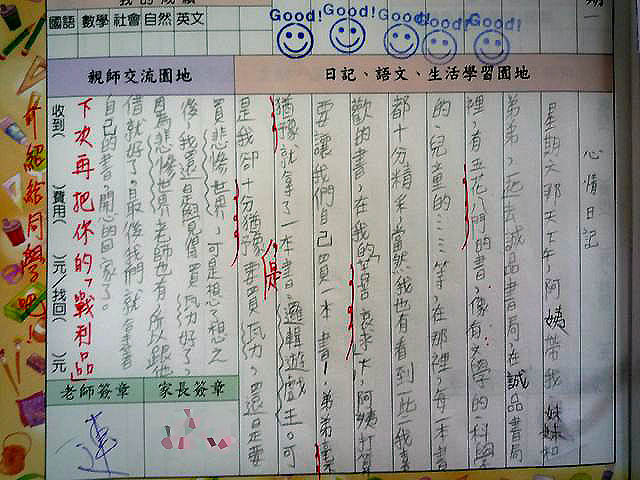 國語 數學 社會 自然 英文
Good! Good! Good! Good! Good!
日記、語文、生活學習園地
親師交流園地
心情日記
星期六那天下午,阿姨帶我妹妹和
弟弟,一起去誠品書局,在誠品書局
裡,有五花八門的書,像有文學的、科學
的、兒童的……等,在那裡,每一本書
都十分精采,當然我也有看到一些我喜
歡的書,在我的「苦苦哀求」下,阿姨打算
要讓我們自己買一本書!弟弟毫不
猶豫就拿了一本書:邏輯遊戲王。可
是我卻十分猶豫,要買瓦力,還是要
買悲慘世界,可是想了想之
後,我還是覺得買瓦力好了,
因為悲慘世界老師也有,所以跟他
借就好了。最後我們就拿著
自己的書,開心的回家了。
是
下次再把你的「戰利品」
介紹給同學吧!
收到( )費用( )元/找回( )元
老師簽章
家長簽章
連